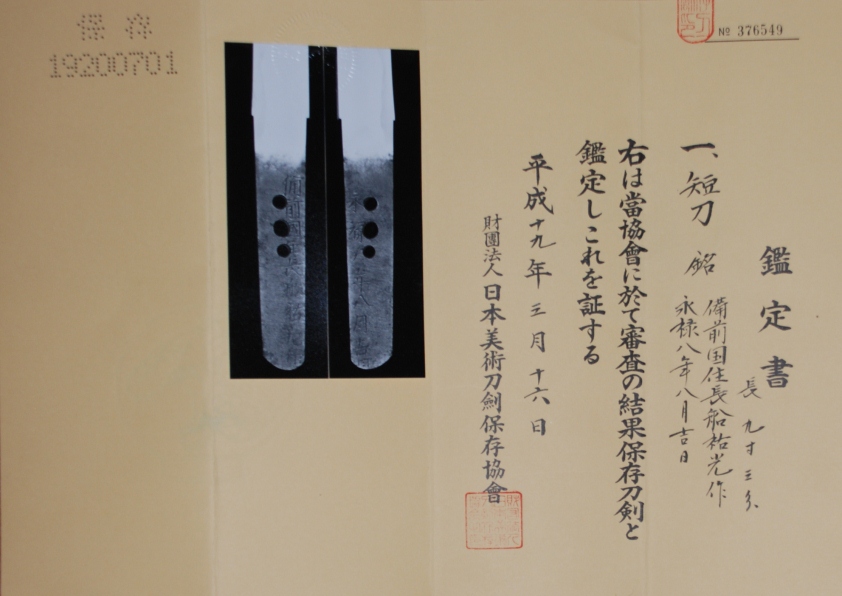 № 376549
鑑定書
一、短刀 銘 備前国住長船祐光作
永禄八年八月吉日
長 九寸三分
右は當協會に於て審査の結果保存刀剣と
鑑定しこれを証する
平成十九年三月十六日
財團法人 日本美術刀劍保存協會
保存
19200701